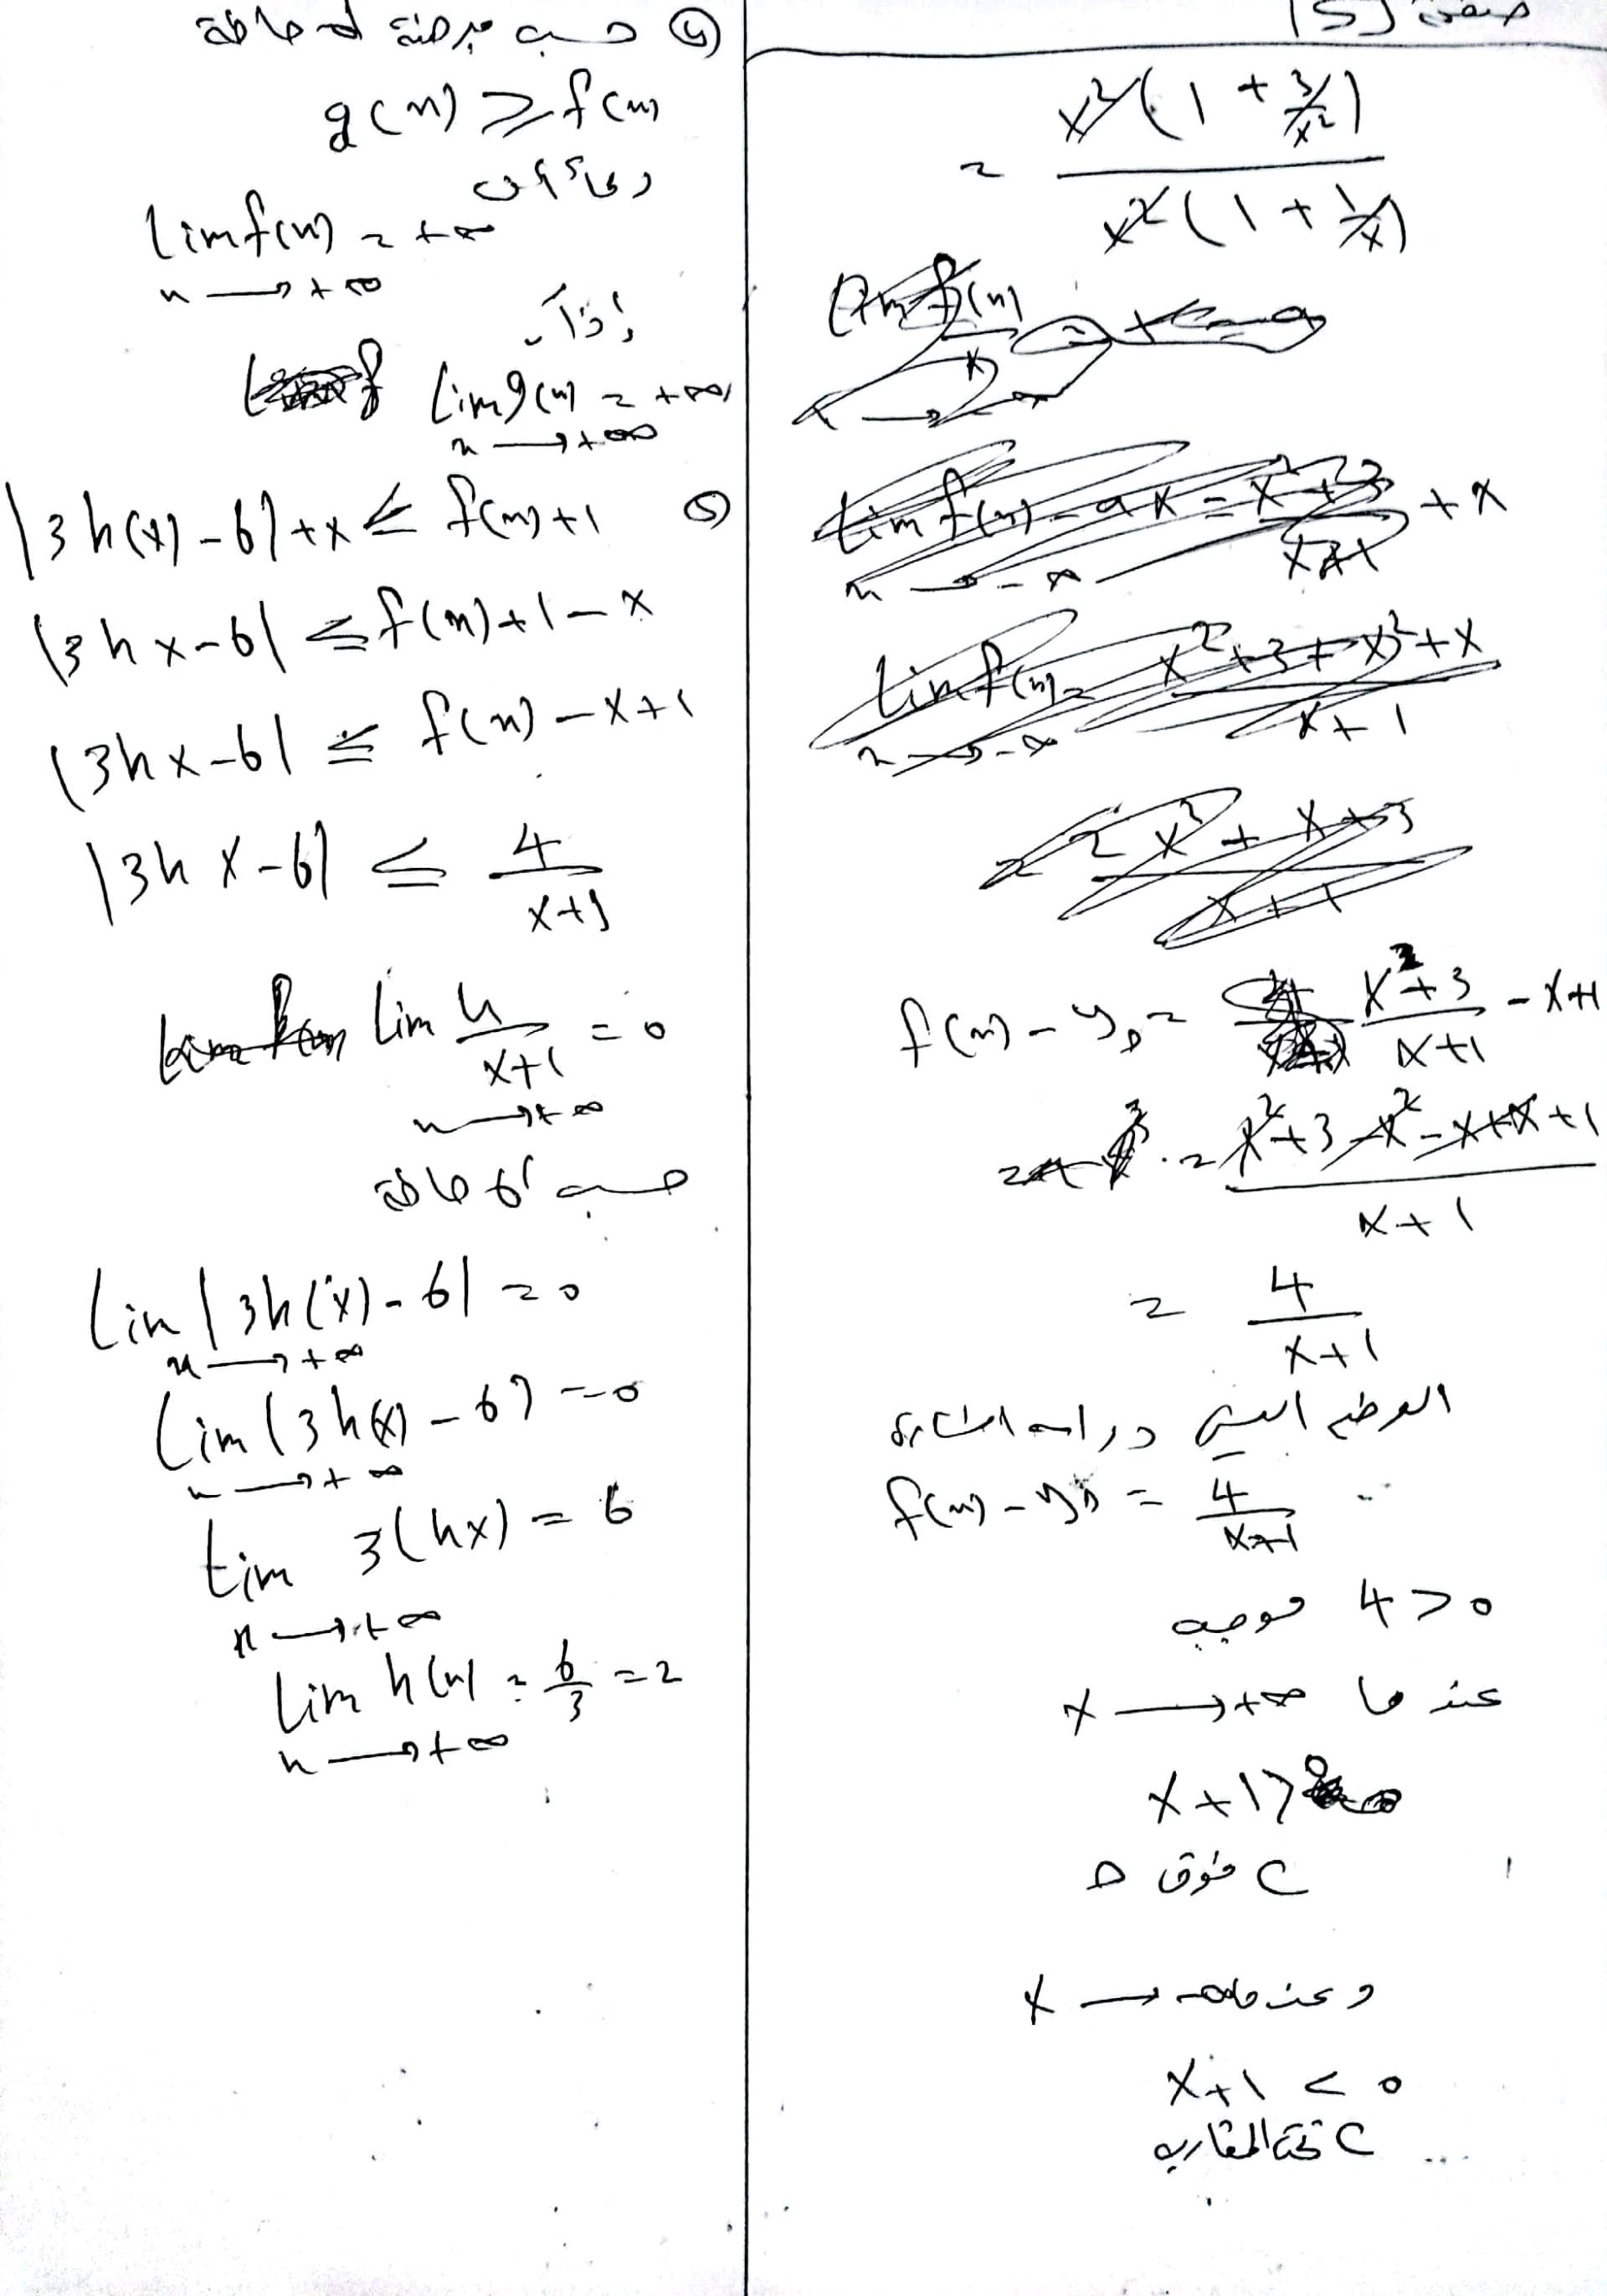 = x²(1 + 3/x²) / x²(1 + 1/x)
f(x) - y_D = x²+3 / x+1 - x+1
= x²+3-x²-x+x+1 / x+1
= 4 / x+1
الوضع النسبي دراسة اشارة
f(x) - y_D = 4 / x+1
4 > 0 موجبه
عندما x → +∞
x+1 > 0
C فوق D
وعندما x → -∞
x+1 < 0
C تحت المقارب
④ حسب مبرهنة احاطة
g(x) ≥ f(x)
وبما أن
lim f(x) = +∞
x → +∞
إذاً
lim g(x) = +∞
x → +∞
⑤ |3h(x) - 6| + x ≤ f(x)+1
|3hx-6| ≤ f(x)+1-x
|3hx-6| ≤ f(x)-x+1
|3hx-6| ≤ 4 / x+1
lim 4 / x+1 = 0
x → +∞
حسب احاطة
lim |3h(x)-6| = 0
x → +∞
lim (3h(x)-6) = 0
x → +∞
lim 3(hx) = 6
x → +∞
lim h(x) = 6/3 = 2
x → +∞